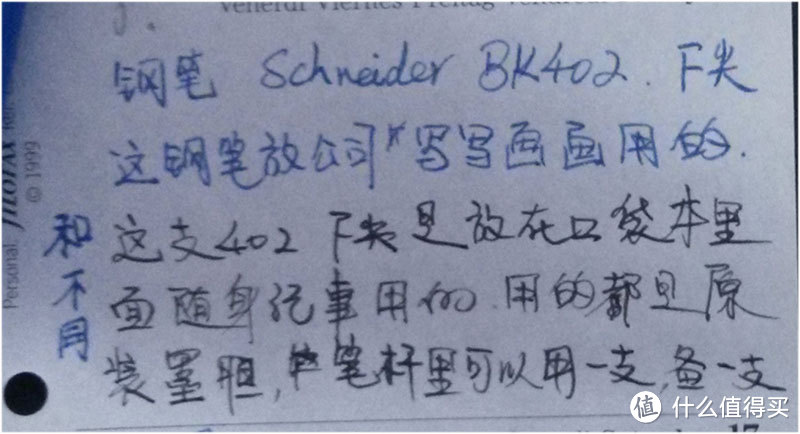 Venerdì Viernes Freitag
钢笔 Schneider BK402. F尖
这钢笔放公司写写画画用的.
这支402 F尖是放在口袋本里
面随身记事用的.用的都是原
装墨胆,笔杆里可以用一支,备一支
和不同
Personal filofax
© 1999
17
值 什么值得买